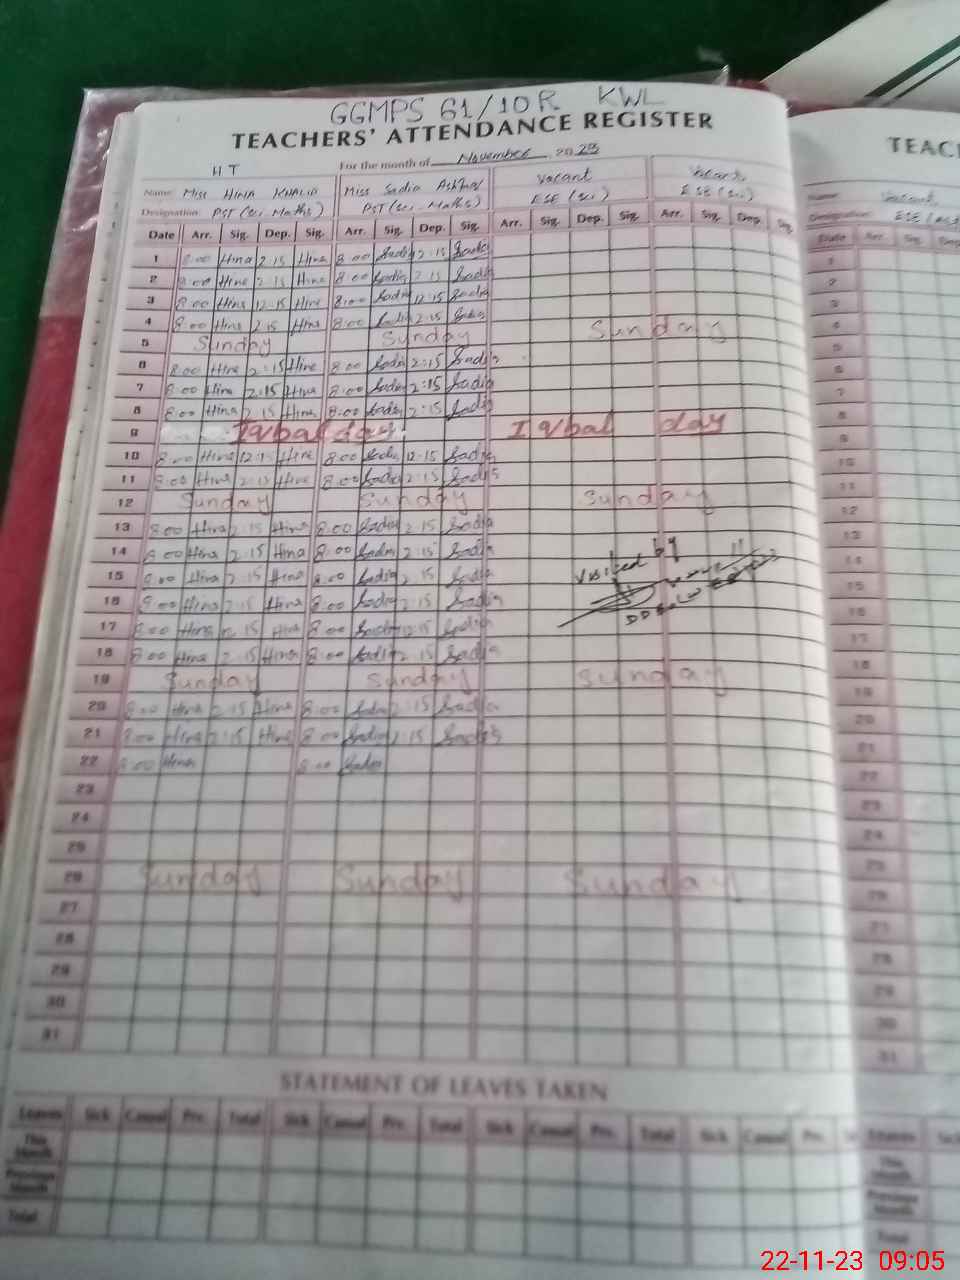 GGMPS 61/10R KWL
TEACHERS' ATTENDANCE REGISTER
TEAC
HT For the month of November 2023
Name: Miss HINA KHALID Miss Sadia Ashraf Vacant Vacant
Designation: PST (Sci. Maths) PST (Sci. Maths) ESE (Sci) ESE (Sci)
Date Arr. Sig. Dep. Sig. Arr. Sig. Dep. Sig. Arr. Sig. Dep. Sig. Arr. Sig. Dep. Sig.
1 8:00 Hina 2:15 Hina 8:00 Sadia 2:15 Sadia
2 8:00 Hina 2:15 Hina 8:00 Sadia 2:15 Sadia
3 8:00 Hina 12:15 Hina 8:00 Sadia 12:15 Sadia
4 8:00 Hina 2:15 Hina 8:00 Sadia 2:15 Sadia
5 Sunday Sunday Sunday
6 8:00 Hina 2:15 Hina 8:00 Sadia 2:15 Sadia
7 8:00 Hina 2:15 Hina 8:00 Sadia 2:15 Sadia
8 8:00 Hina 2:15 Hina 8:00 Sadia 2:15 Sadia
9 Iqbal day Iqbal day
10 8:00 Hina 12:15 Hina 8:00 Sadia 12:15 Sadia
11 8:00 Hina 2:15 Hina 8:00 Sadia 2:15 Sadia
12 Sunday Sunday Sunday
13 8:00 Hina 2:15 Hina 8:00 Sadia 2:15 Sadia
14 8:00 Hina 2:15 Hina 8:00 Sadia 2:15 Sadia
15 8:00 Hina 2:15 Hina 8:00 Sadia 2:15 Sadia
Visited by
16 8:00 Hina 2:15 Hina 8:00 Sadia 2:15 Sadia
17 8:00 Hina 12:15 Hina 8:00 Sadia 12:15 Sadia
18 8:00 Hina 2:15 Hina 8:00 Sadia 2:15 Sadia
19 Sunday Sunday Sunday
20 8:00 Hina 2:15 Hina 8:00 Sadia 2:15 Sadia
21 8:00 Hina 2:15 Hina 8:00 Sadia 2:15 Sadia
22 8:00 Hina 8:00 Sadia
23
24
25
26 Sunday Sunday Sunday
27
28
29
30
31
STATEMENT OF LEAVES TAKEN
Leaves Sick Casual Prv. Total Sick Casual Prv. Total Sick Casual Prv. Total Sick Casual Prv.
This Month
Previous Month
Total
22-11-23 09:05